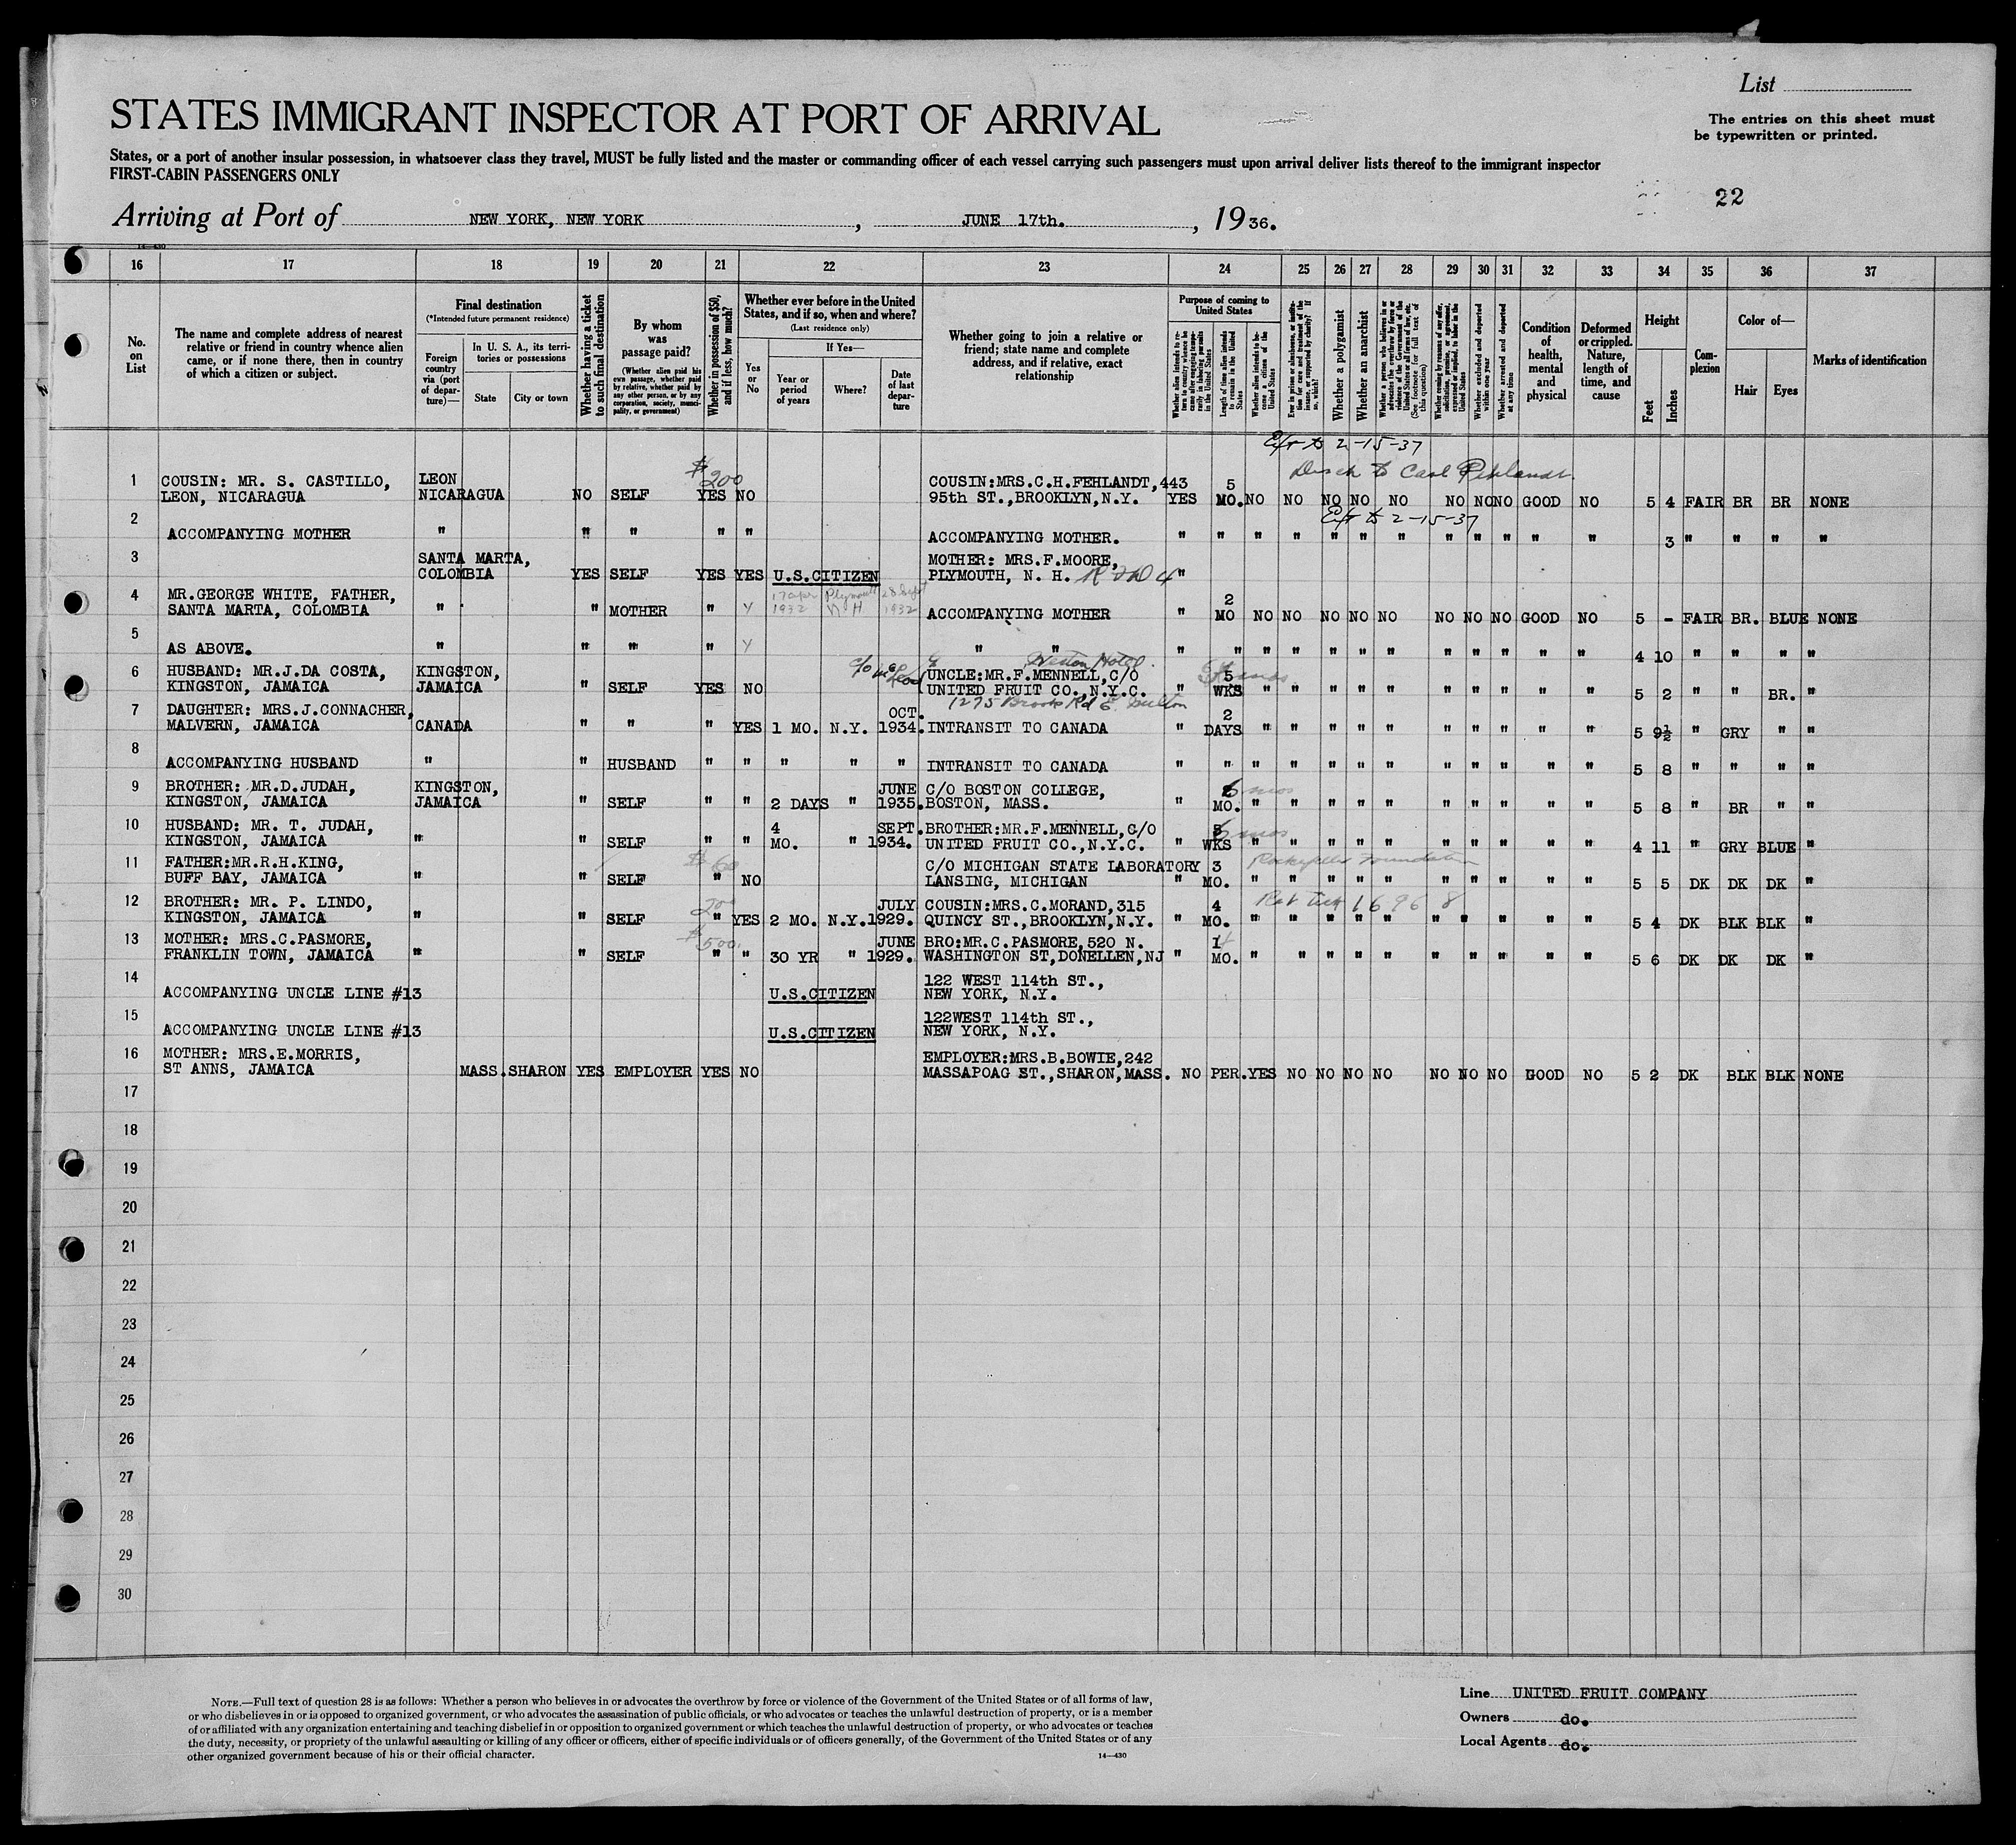 List
The entries on this sheet must
be typewritten or printed.
STATES IMMIGRANT INSPECTOR AT PORT OF ARRIVAL
States, or a port of another insular possession, in whatsoever class they travel, MUST be fully listed and the master or commanding officer of each vessel carrying such passengers must upon arrival deliver lists thereof to the immigrant inspector
FIRST-CABIN PASSENGERS ONLY
22
Arriving at Port of NEW YORK, NEW YORK, JUNE 17th., 1936.
14—430
16 17 18 19 20 21 22 23 24 25 26 27 28 29 30 31 32 33 34 35 36 37
No. on List
The name and complete address of nearest relative or friend in country whence alien came, or if none there, then in country of which a citizen or subject.
Final destination
(*Intended future permanent residence)
Foreign country via (port of departure)—
In U. S. A., its territories or possessions
State City or town
Whether having a ticket to such final destination
By whom was passage paid?
(Whether alien paid his own passage, whether paid by relative, whether paid by any other person, or by any corporation, society, municipality, or government)
Whether in possession of $50, and if less, how much?
Whether ever before in the United States, and if so, when and where?
(Last residence only)
Yes or No
If Yes—
Year or period of years
Where?
Date of last departure
Whether going to join a relative or friend; state name and complete address, and if relative, exact relationship
Purpose of coming to United States
Length of time alien intends to remain in the United States
Whether alien intends to become a citizen of the United States
Whether a polygamist
Whether an anarchist
Whether excluded and deported within one year
Whether arrested and deported at any time
Condition of health, mental and physical
Deformed or crippled. Nature, length of time, and cause
Height
Feet Inches
Complexion
Color of—
Hair Eyes
Marks of identification
to 2-15-37
$200
to Carl Fehlandt
1 COUSIN: MR. S. CASTILLO, LEON COUSIN:MRS.C.H.FEHLANDT,443 5
LEON, NICARAGUA NICARAGUA NO SELF YES NO 95th ST.,BROOKLYN,N.Y. YES MO. NO NO NO NO NO NO NO NO GOOD NO 5 4 FAIR BR BR NONE
to 2-15-37
2 ACCOMPANYING MOTHER " " " " " ACCOMPANYING MOTHER. " " " " " " " " " " " " 3 " " " "
3 SANTA MARTA, MOTHER: MRS.F.MOORE,
COLOMBIA YES SELF YES YES U.S.CITIZEN PLYMOUTH, N. H. "
17 apr Plymouth 28 Sept
1932 N H 1932
4 MR.GEORGE WHITE, FATHER, 2
SANTA MARTA, COLOMBIA " " MOTHER " Y ACCOMPANYING MOTHER " MO NO NO NO NO NO NO NO NO GOOD NO 5 - FAIR BR. BLUE NONE
5 AS ABOVE. " " " " Y " " " " " " " " " " " " " " 4 10 " " " "
Weston Hotel
6 HUSBAND: MR.J.DA COSTA, KINGSTON, UNCLE:MR.F.MENNELL,C/O 5
KINGSTON, JAMAICA JAMAICA " SELF YES NO UNITED FRUIT CO.,N.Y.C. " WKS " " " " " " " " " " 5 2 " " BR. "
1275 Brooks Rd
7 DAUGHTER: MRS.J.CONNACHER, OCT. 2
MALVERN, JAMAICA CANADA " " " YES 1 MO. N.Y. 1934. INTRANSIT TO CANADA " DAYS " " " " " " " " " " 5 9½ " GRY " "
8 ACCOMPANYING HUSBAND " " HUSBAND " " " " " INTRANSIT TO CANADA " " " " " " " " " " " " 5 8 " " " "
9 BROTHER: MR.D.JUDAH, KINGSTON, JUNE C/O BOSTON COLLEGE, 6 mos
KINGSTON, JAMAICA JAMAICA " SELF " " 2 DAYS " 1935. BOSTON, MASS. " MO. " " " " " " " " " " 5 8 " BR " "
10 HUSBAND: MR. T. JUDAH, 4 SEPT. BROTHER:MR.F.MENNELL,C/O 5 mos
KINGSTON, JAMAICA " " SELF " " MO. " 1934. UNITED FRUIT CO.,N.Y.C. " WKS " " " " " " " " " " 4 11 " GRY BLUE "
$60
11 FATHER:MR.R.H.KING, C/O MICHIGAN STATE LABORATORY 3 Rockefeller Foundation
BUFF BAY, JAMAICA " " SELF " NO LANSING, MICHIGAN " MO. " " " " " " " " " " 5 5 DK DK DK "
200
12 BROTHER: MR. P. LINDO, JULY COUSIN:MRS.C.MORAND,315 4 Ret tick 16968
KINGSTON, JAMAICA " " SELF " YES 2 MO. N.Y. 1929. QUINCY ST.,BROOKLYN,N.Y. " MO. " " " " " " " " " " 5 4 DK BLK BLK "
$500
13 MOTHER: MRS.C.PASMORE, JUNE BRO:MR.C.PASMORE,520 N. 1
FRANKLIN TOWN, JAMAICA " " SELF " " 30 YR " 1929. WASHINGTON ST,DONELLEN,NJ " MO. " " " " " " " " " " 5 6 DK DK DK "
14 122 WEST 114th ST.,
ACCOMPANYING UNCLE LINE #13 U.S.CITIZEN NEW YORK, N.Y.
15 122WEST 114th ST.,
ACCOMPANYING UNCLE LINE #13 U.S.CITIZEN NEW YORK, N.Y.
16 MOTHER: MRS.E.MORRIS, EMPLOYER:MRS.B.BOWIE,242
ST ANNS, JAMAICA MASS. SHARON YES EMPLOYER YES NO MASSAPOAG ST.,SHARON,MASS. NO PER. YES NO NO NO NO NO NO NO GOOD NO 5 2 DK BLK BLK NONE
17
18
19
20
21
22
23
24
25
26
27
28
29
30
NOTE.—Full text of question 28 is as follows: Whether a person who believes in or advocates the overthrow by force or violence of the Government of the United States or of all forms of law,
or who disbelieves in or is opposed to organized government, or who advocates the assassination of public officials, or who advocates or teaches the unlawful destruction of property, or is a member
of or affiliated with any organization entertaining and teaching disbelief in or opposition to organized government or which teaches the unlawful destruction of property, or who advocates or teaches
the duty, necessity, or propriety of the unlawful assaulting or killing of any officer or officers, either of specific individuals or of officers generally, of the Government of the United States or of any
other organized government because of his or their official character.
14—430
Line UNITED FRUIT COMPANY
Owners do.
Local Agents do.